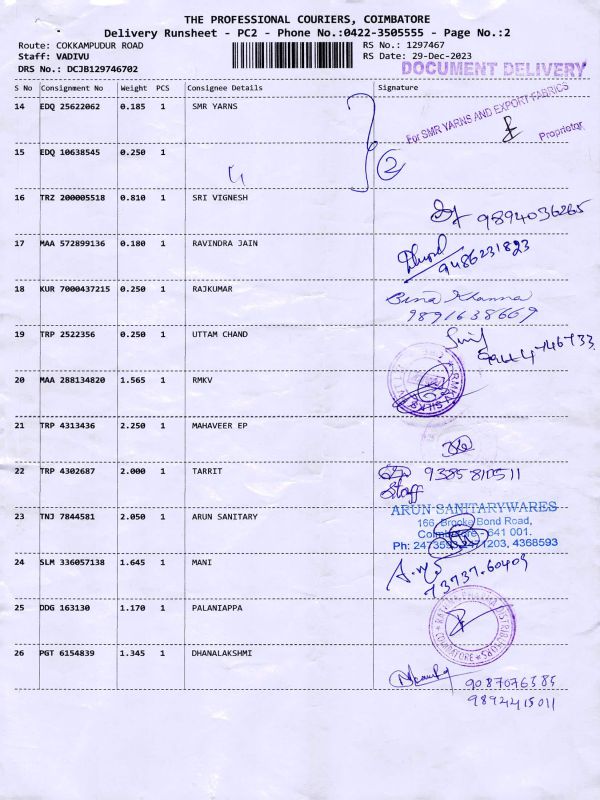 THE PROFESSIONAL COURIERS, COIMBATORE
Delivery Runsheet - PC2 - Phone No.:0422-3505555 - Page No.:2
Route: COKKAMPUDUR ROAD
Staff: VADIVU
DRS No.: DCJB129746702
RS No.: 1297467
RS Date: 29-Dec-2023
DOCUMENT DELIVERY
S No Consignment No Weight PCS Consignee Details Signature
14 EDQ 25622062 0.185 1 SMR YARNS
For SMR YARNS AND EXPORT FABRICS
Proprietor
15 EDQ 10638545 0.250 1
2
16 TRZ 200005518 0.810 1 SRI VIGNESH
9894036265
17 MAA 572899136 0.180 1 RAVINDRA JAIN
9486231823
18 KUR 7000437215 0.250 1 RAJKUMAR
Bina Khanna
9891638669
19 TRP 2522356 0.250 1 UTTAM CHAND
20 MAA 288134820 1.565 1 RMKV
RMKV SILKS
21 TRP 4313436 2.250 1 MAHAVEER EP
22 TRP 4302687 2.000 1 TARRIT
9385810511
Staff
23 TNJ 7844581 2.050 1 ARUN SANITARY
ARUN SANITARYWARES
166, Brooke Bond Road,
Coimbatore - 641 001.
Ph: 2473593, 2471203, 4368593
24 SLM 336057138 1.645 1 MANI
73737.60409
25 DDG 163130 1.170 1 PALANIAPPA
DISTRIBUTORS
COIMBATORE
26 PGT 6154839 1.345 1 DHANALAKSHMI
9087076585
9892415011